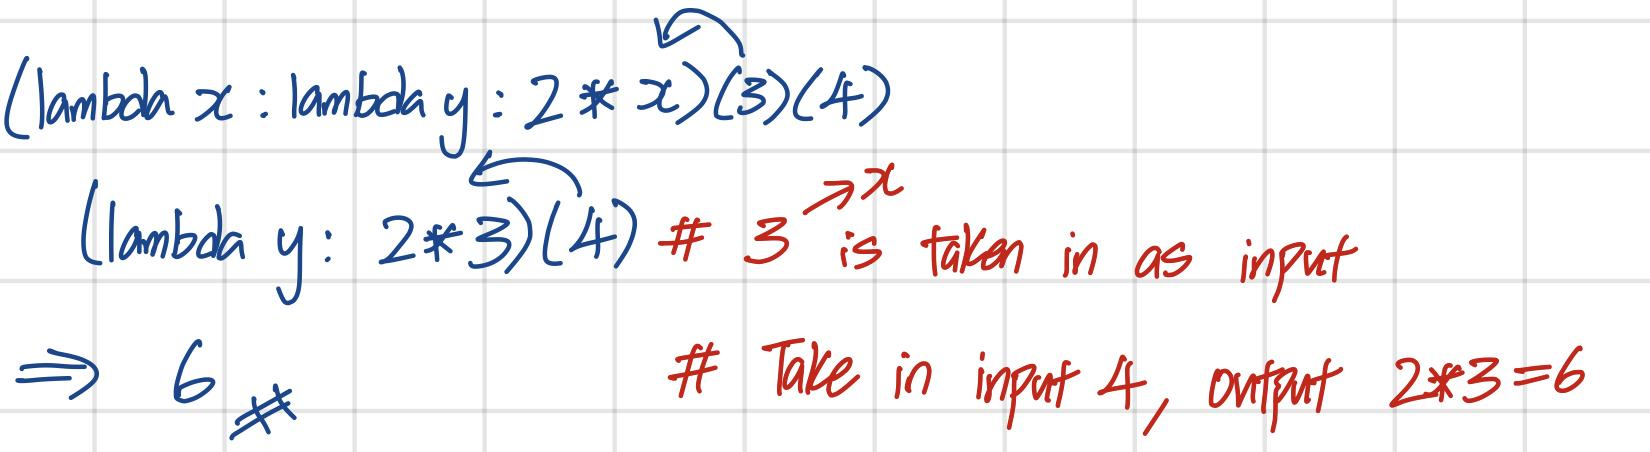 (lambda x : lambda y : 2 * x)(3)(4)
(lambda y : 2*3)(4) # 3 → x is taken in as input
⇒ 6 # Take in input 4, output 2*3=6